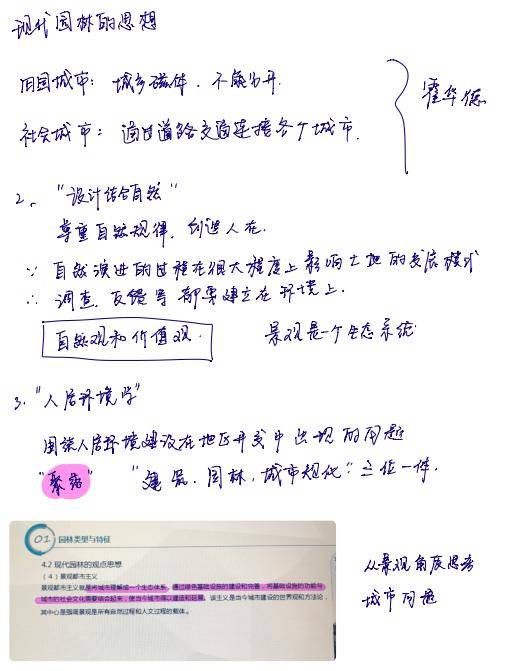 现代园林的思想
田园城市：城乡磁体，不能分开.
社会城市：通过道路交通连接各个城市.
霍华德
2、"设计结合自然"
尊重自然规律，创造人在.
∵ 自然演进的过程在很大程度上影响土地的发展模式
∴ 调查、反馈等都要建立在环境上.
自然观和价值观.
景观是一个生态系统
3."人居环境学"
围绕人居环境建设在地区开发中出现的问题
"聚落" "建筑.园林,城市规化"三位一体.
01 园林类型与特征
4.2 现代园林的观点思想
（4）景观都市主义
景观都市主义就是将城市理解成一个生态体系，通过绿色基础设施的建设和完善，将基础设施的功能与
城市的社会文化需要结合起来，使当今城市得以建造和延展。该主义是当今城市建设的世界观和方法论，
其中心是强调景观是所有自然过程和人文过程的载体。
从景观角度思考
城市问题